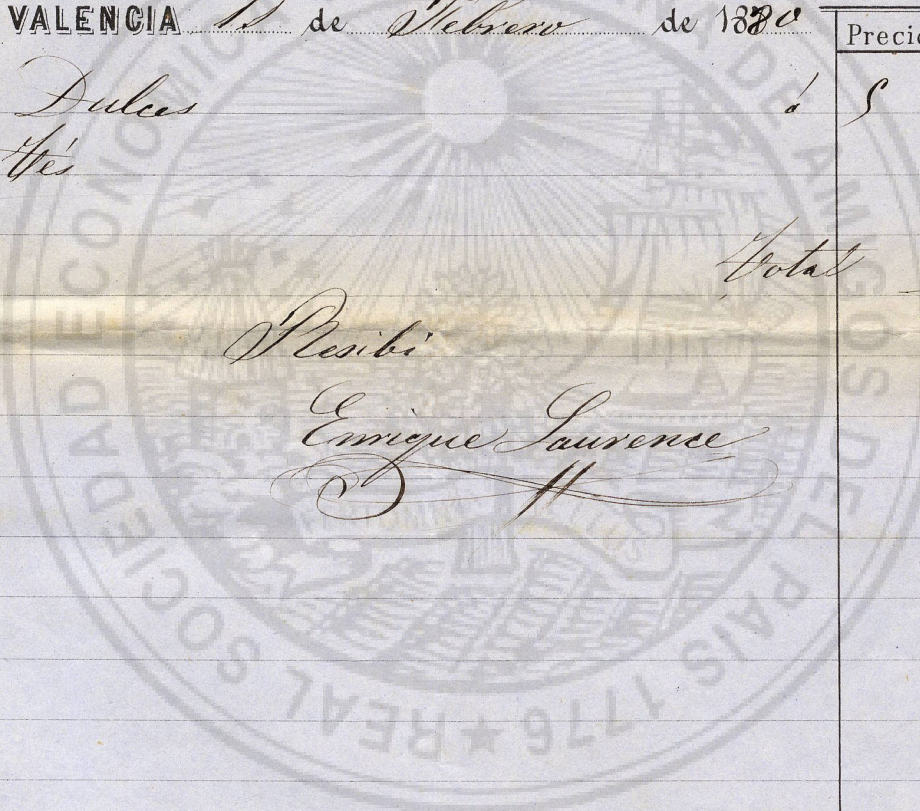 VALENCIA de Febrero de 1880
Precio
Dulces á 5
Tés
Total
Resibi
Enrique Laurence
REAL SOCIEDAD ECONOMICA DE AMIGOS DEL PAIS 1776